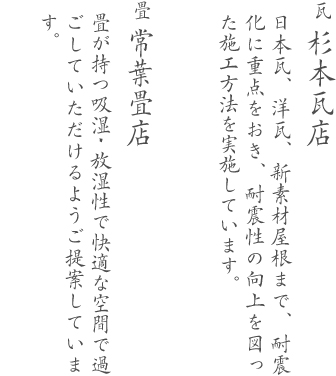 瓦 杉本瓦店
日本瓦、洋瓦、新素材屋根まで、耐震
化に重点をおき、耐震性の向上を図っ
た施工方法を実施しています。
畳 常葉畳店
畳が持つ吸湿・放湿性で快適な空間で過
ごしていただけるようご提案していま
す。